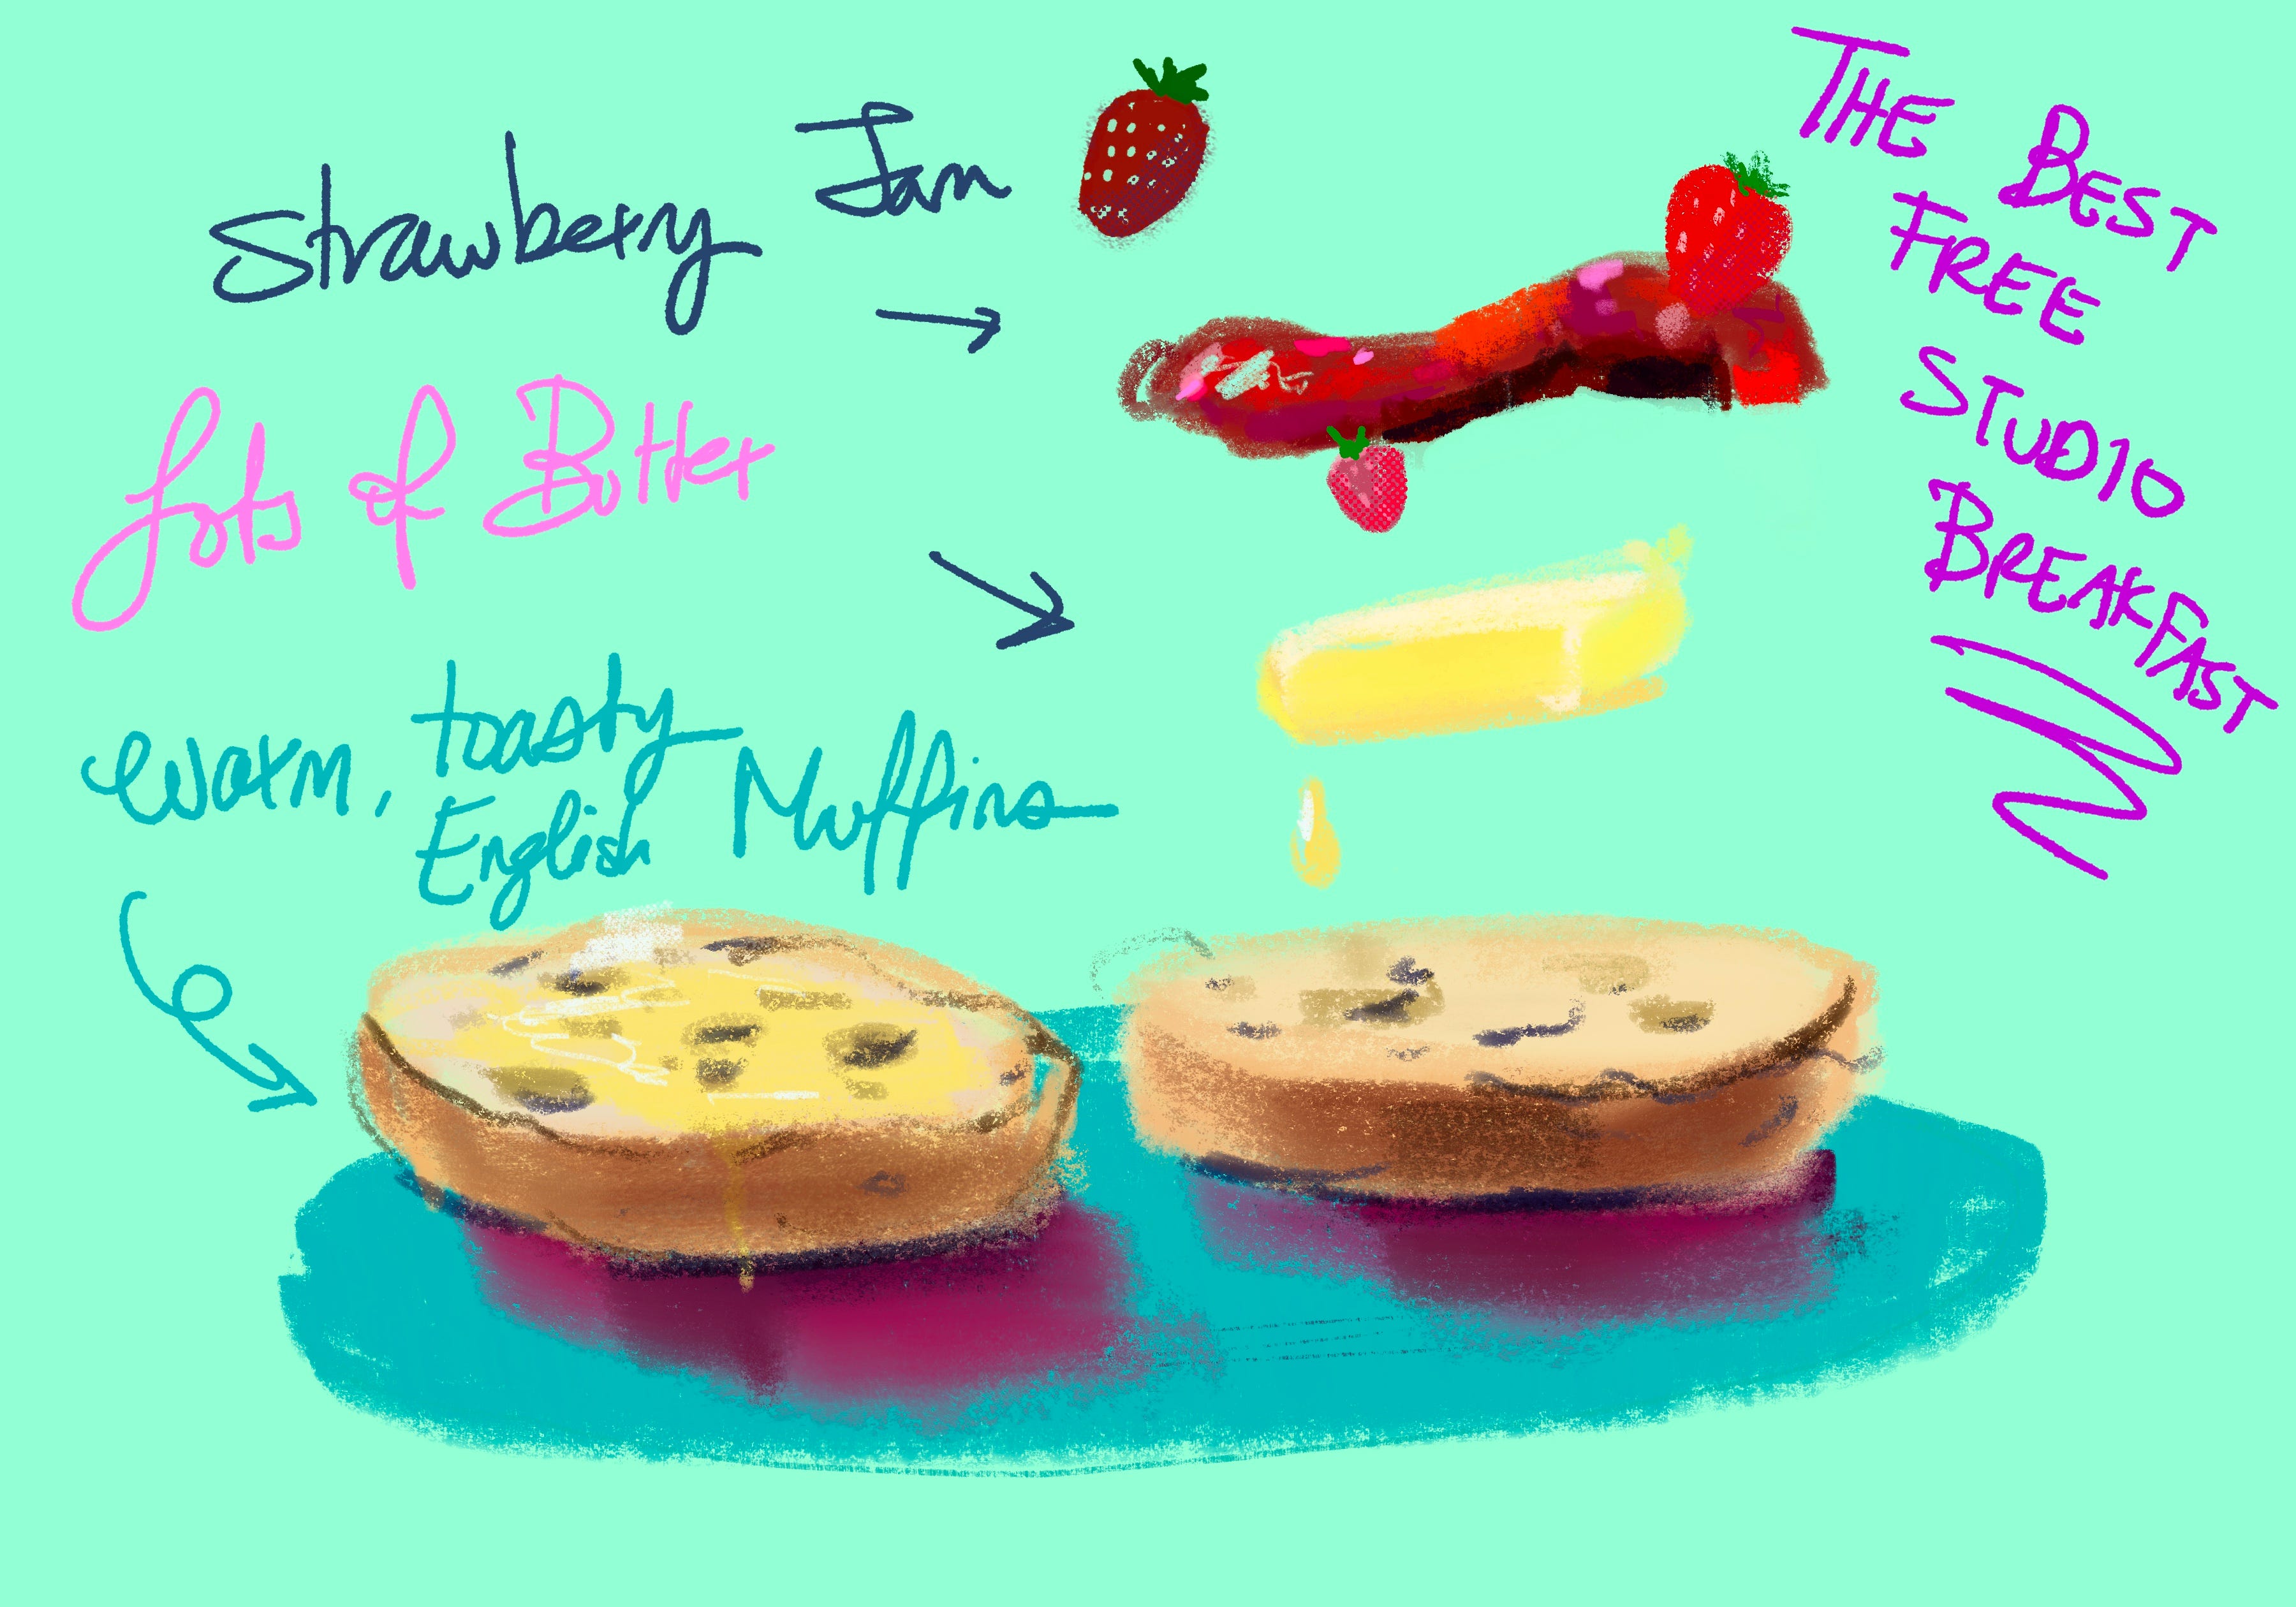 Strawberry Jam
Lots of Butter
Warm, toasty
English Muffins
THE BEST
FREE
STUDIO
BREAKFAST